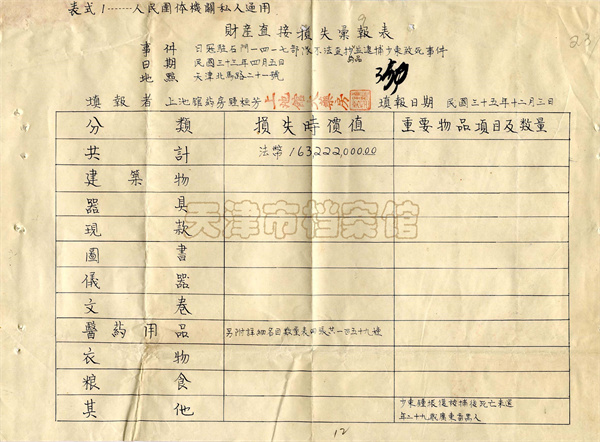 表式1……人民團体機關私人通用
財產直接損失彙報表
事件 日寇駐石門一四一七部隊不法查抄並逮捕少東致死事件
藥品
日期 民國三十三年四月五日
地點 天津北馬路二十一號
填報者 上池館藥房鍾桂芳 填報日期 民國三十五年十二月三日
分類 損失時價值 重要物品項目及數量
共計 法幣 163222,000.00
建築物
器具
現款
圖書
儀器
文卷
醫药用品 另附詳細名目數量表四張共一百五十九種
衣物
粮食
其他
年二十九歲廣東香山人
天津市档案馆
12
23